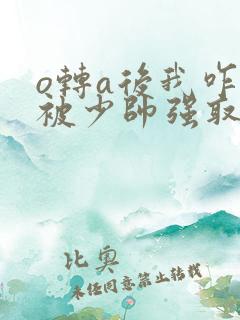 o轉a後我咋
被少帥强取
比奥
未任同意禁止转载